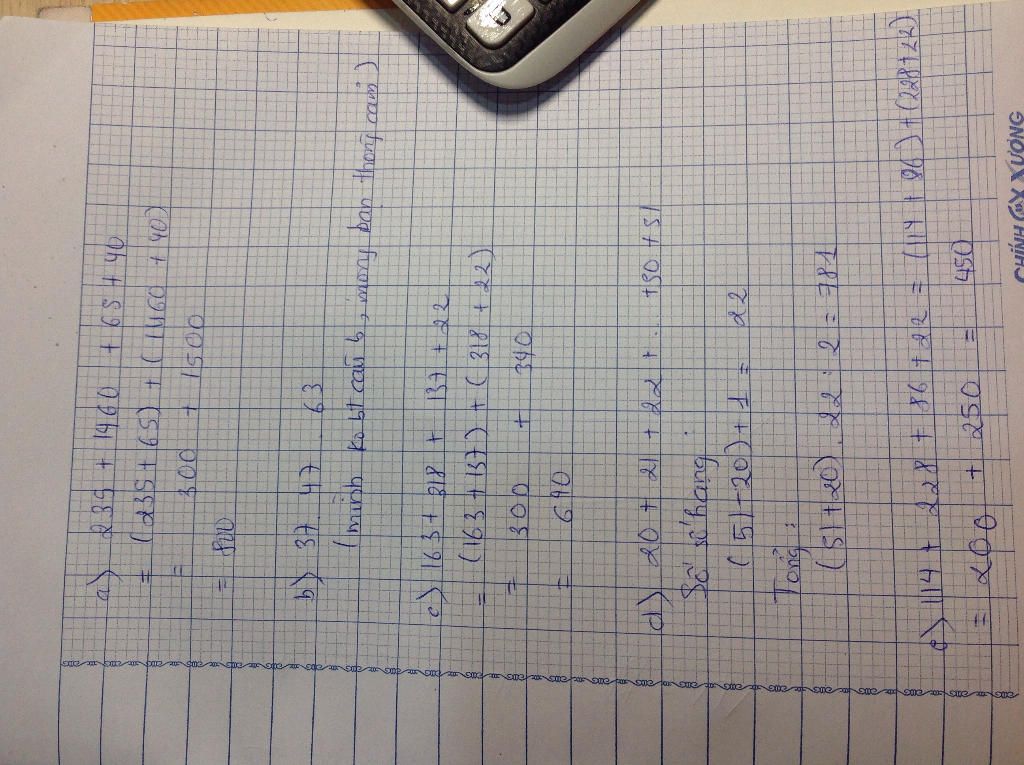 a) 235 + 1460 + 65 + 40
= (235 + 65) + (1460 + 40)
= 300 + 1500
= 800
b) 37 . 47 . 63
(mình ko bt câu b, mong bạn thông cảm)
c) 163 + 318 + 137 + 22
= (163 + 137) + (318 + 22)
= 300 + 340
= 640
d) 20 + 21 + 22 + ... + 50 + 51
Số số hạng:
(51 - 20) + 1 = 22
Tổng:
(51 + 20) . 22 : 2 = 781
e) 114 + 228 + 86 + 22 = (114 + 86) + (228 + 22)
= 200 + 250 = 450
CHÍNH XƯƠNG